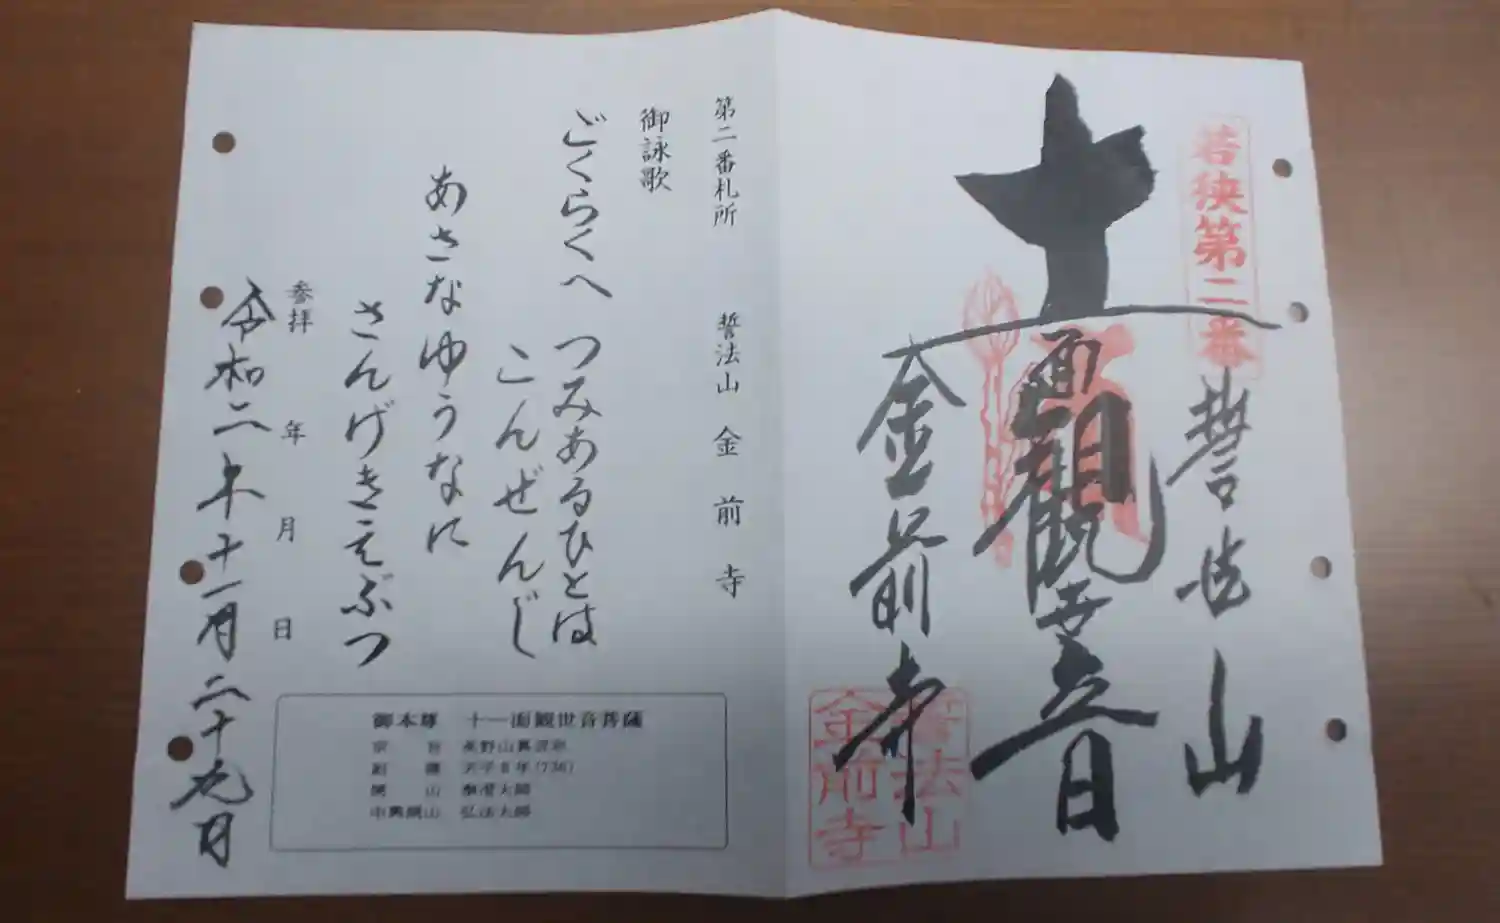 若狭第二番
誓法山
十一面観世音
金前寺
誓法山
金前寺
第二番札所 誓法山 金前寺
御詠歌
ごくらくへ つみあるひとは
こんぜんじ
あさなゆうなに
さんげきえぶつ
参拝 年 月 日
令和二年十一月二十九日
御本尊 十一面観世音菩薩
宗旨 高野山真言宗
創建 天平8年(736)
開山 泰澄大師
中興開山 弘法大師